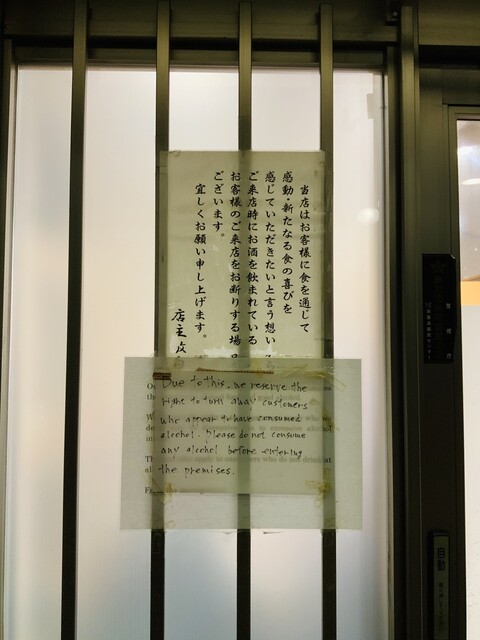 当店はお客様に食を通じて
感動・新たなる食の喜びを
感じていただきたいと言う想い
ご来店時にお酒を飲まれている
お客様のご来店をお断りする場
ございます。
宜しくお願い申し上げます。
店主
Due to this, we reserve the
right to turn away customers
who appear to have consumed
alcohol. Please do not consume
any alcohol before entering
the premises.
自動